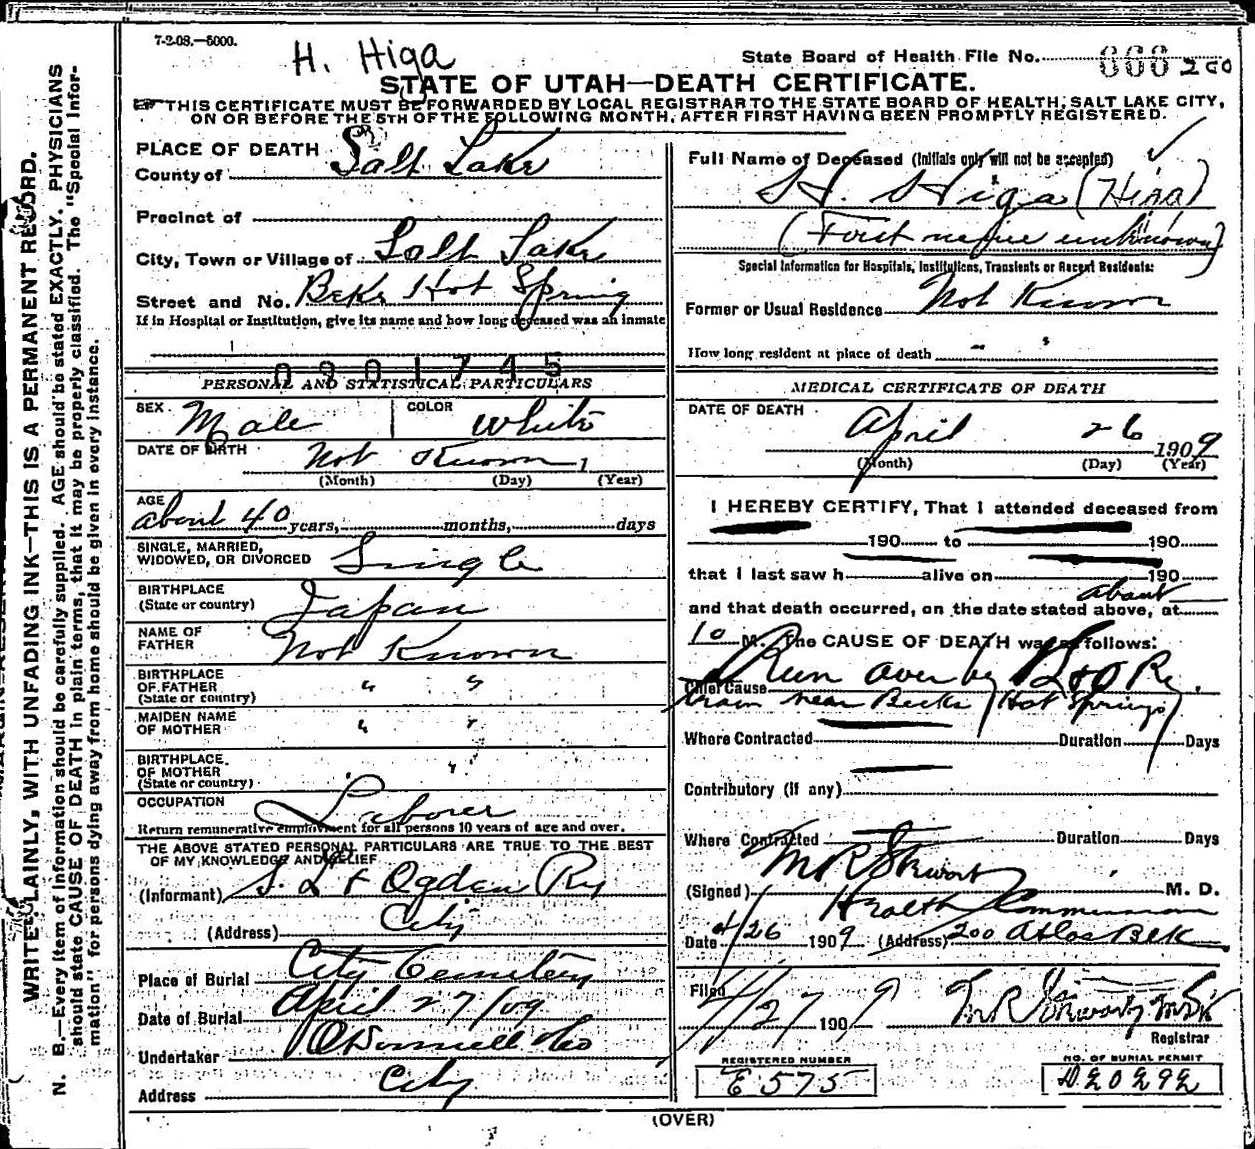 7-2-08.—5000.
H. Higa
State Board of Health File No. 668 200
STATE OF UTAH—DEATH CERTIFICATE.
THIS CERTIFICATE MUST BE FORWARDED BY LOCAL REGISTRAR TO THE STATE BOARD OF HEALTH, SALT LAKE CITY,
ON OR BEFORE THE 5TH OF THE FOLLOWING MONTH, AFTER FIRST HAVING BEEN PROMPTLY REGISTERED.
WRITE PLAINLY, WITH UNFADING INK—THIS IS A PERMANENT RECORD.
N. B.—Every item of information should be carefully supplied. AGE should be stated EXACTLY. PHYSICIANS
should state CAUSE OF DEATH in plain terms, that it may be properly classified. The "Special Infor-
mation" for persons dying away from home should be given in every instance.
PLACE OF DEATH
County of Salt Lake
Precinct of
City, Town or Village of Salt Lake
Street and No. Beks Hot Spring
If in Hospital or Institution, give its name and how long deceased was an inmate
0901745
PERSONAL AND STATISTICAL PARTICULARS
SEX Male COLOR White
DATE OF BIRTH Not Known
(Month) (Day) (Year)
AGE
about 40 years, months, days
SINGLE, MARRIED,
WIDOWED, OR DIVORCED Single
BIRTHPLACE
(State or country) Japan
NAME OF
FATHER Not Known
BIRTHPLACE
OF FATHER " "
(State or country)
MAIDEN NAME
OF MOTHER " "
BIRTHPLACE
OF MOTHER "
(State or country)
OCCUPATION Laborer
Return remunerative employment for all persons 10 years of age and over.
THE ABOVE STATED PERSONAL PARTICULARS ARE TRUE TO THE BEST
OF MY KNOWLEDGE AND BELIEF
(Informant) S. L & Ogden Ry
(Address) City
Place of Burial City Cemetery
Date of Burial April 27/09
Undertaker O'Donnell & Co
Address City
Full Name of Deceased (Initials only will not be accepted)
H. Higa (Higa)
(First name unknown)
Special Information for Hospitals, Institutions, Transients or Recent Residents:
Former or Usual Residence Not Known
How long resident at place of death " "
MEDICAL CERTIFICATE OF DEATH
DATE OF DEATH April 26 1909
(Month) (Day) (Year)
I HEREBY CERTIFY, That I attended deceased from
190 to 190
that I last saw h alive on 190
about
and that death occurred, on the date stated above, at
10 M. The CAUSE OF DEATH was as follows:
Run over by L & O Ry.
Chief Cause train near Becks Hot Springs
Where Contracted Duration Days
Contributory (if any)
Where Contracted Duration Days
(Signed) M R Stewart M. D.
Health Commissioner
Date 4/26 1909 (Address) 200 Atlas Blk
Filed 4/27 1909 M R Stewart
Registrar
REGISTERED NUMBER
E 575
NO. OF BURIAL PERMIT
D20292
(OVER)